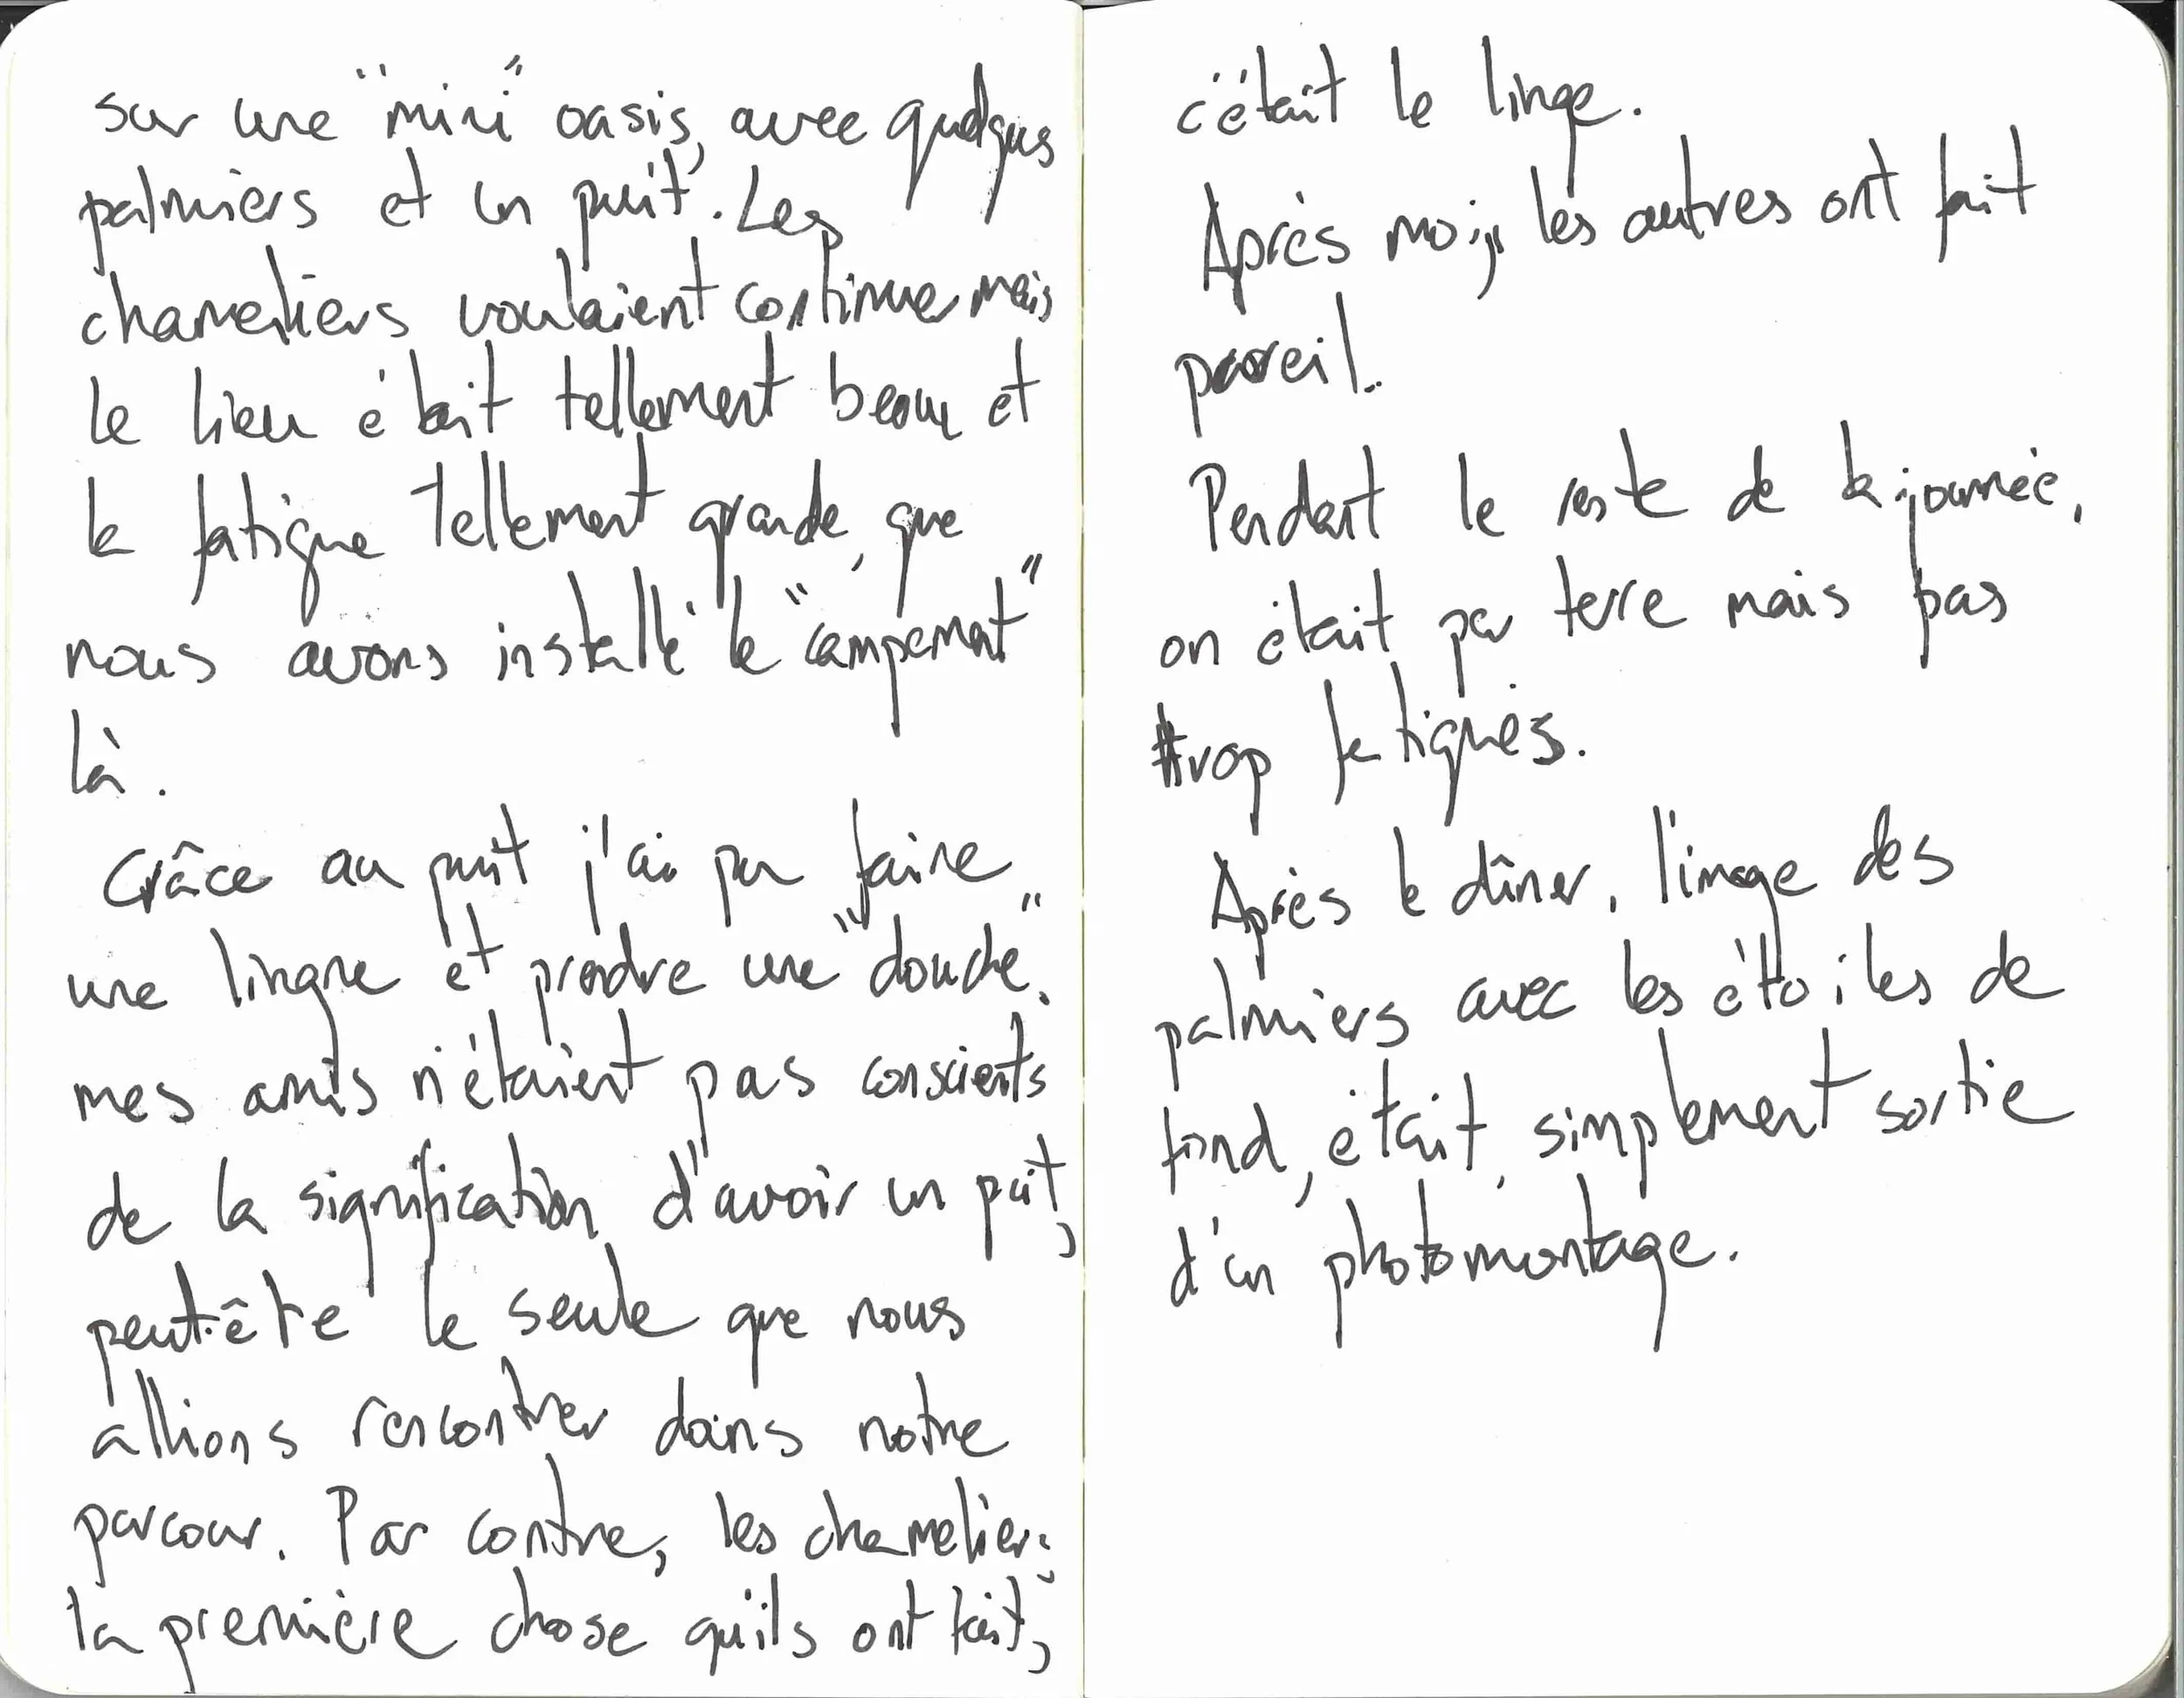 sur une "mini" oasis, avec quelques
palmiers et un puit. Les
chameliers voulaient continuer mais
le lieu était tellement beau et
la fatigue tellement grande, que
nous avons installé le "campement"
là.
Grâce au puit j'ai pu faire
une lingne et prendre une "douche".
mes amis n'étaient pas conscients
de la signification d'avoir un puit,
peut-être le seule que nous
allions rencontrer dans notre
parcour. Par contre, les chameliers
la première chose qu'ils ont fait,
c'était le linge.
Après moi, les autres ont fait
pareil.
Pendant le reste de la journée,
on était par terre mais pas
trop fatigués.
Après le dîner, l'image des
palmiers avec les étoiles de
fond, était, simplement sortie
d'un photomontage.